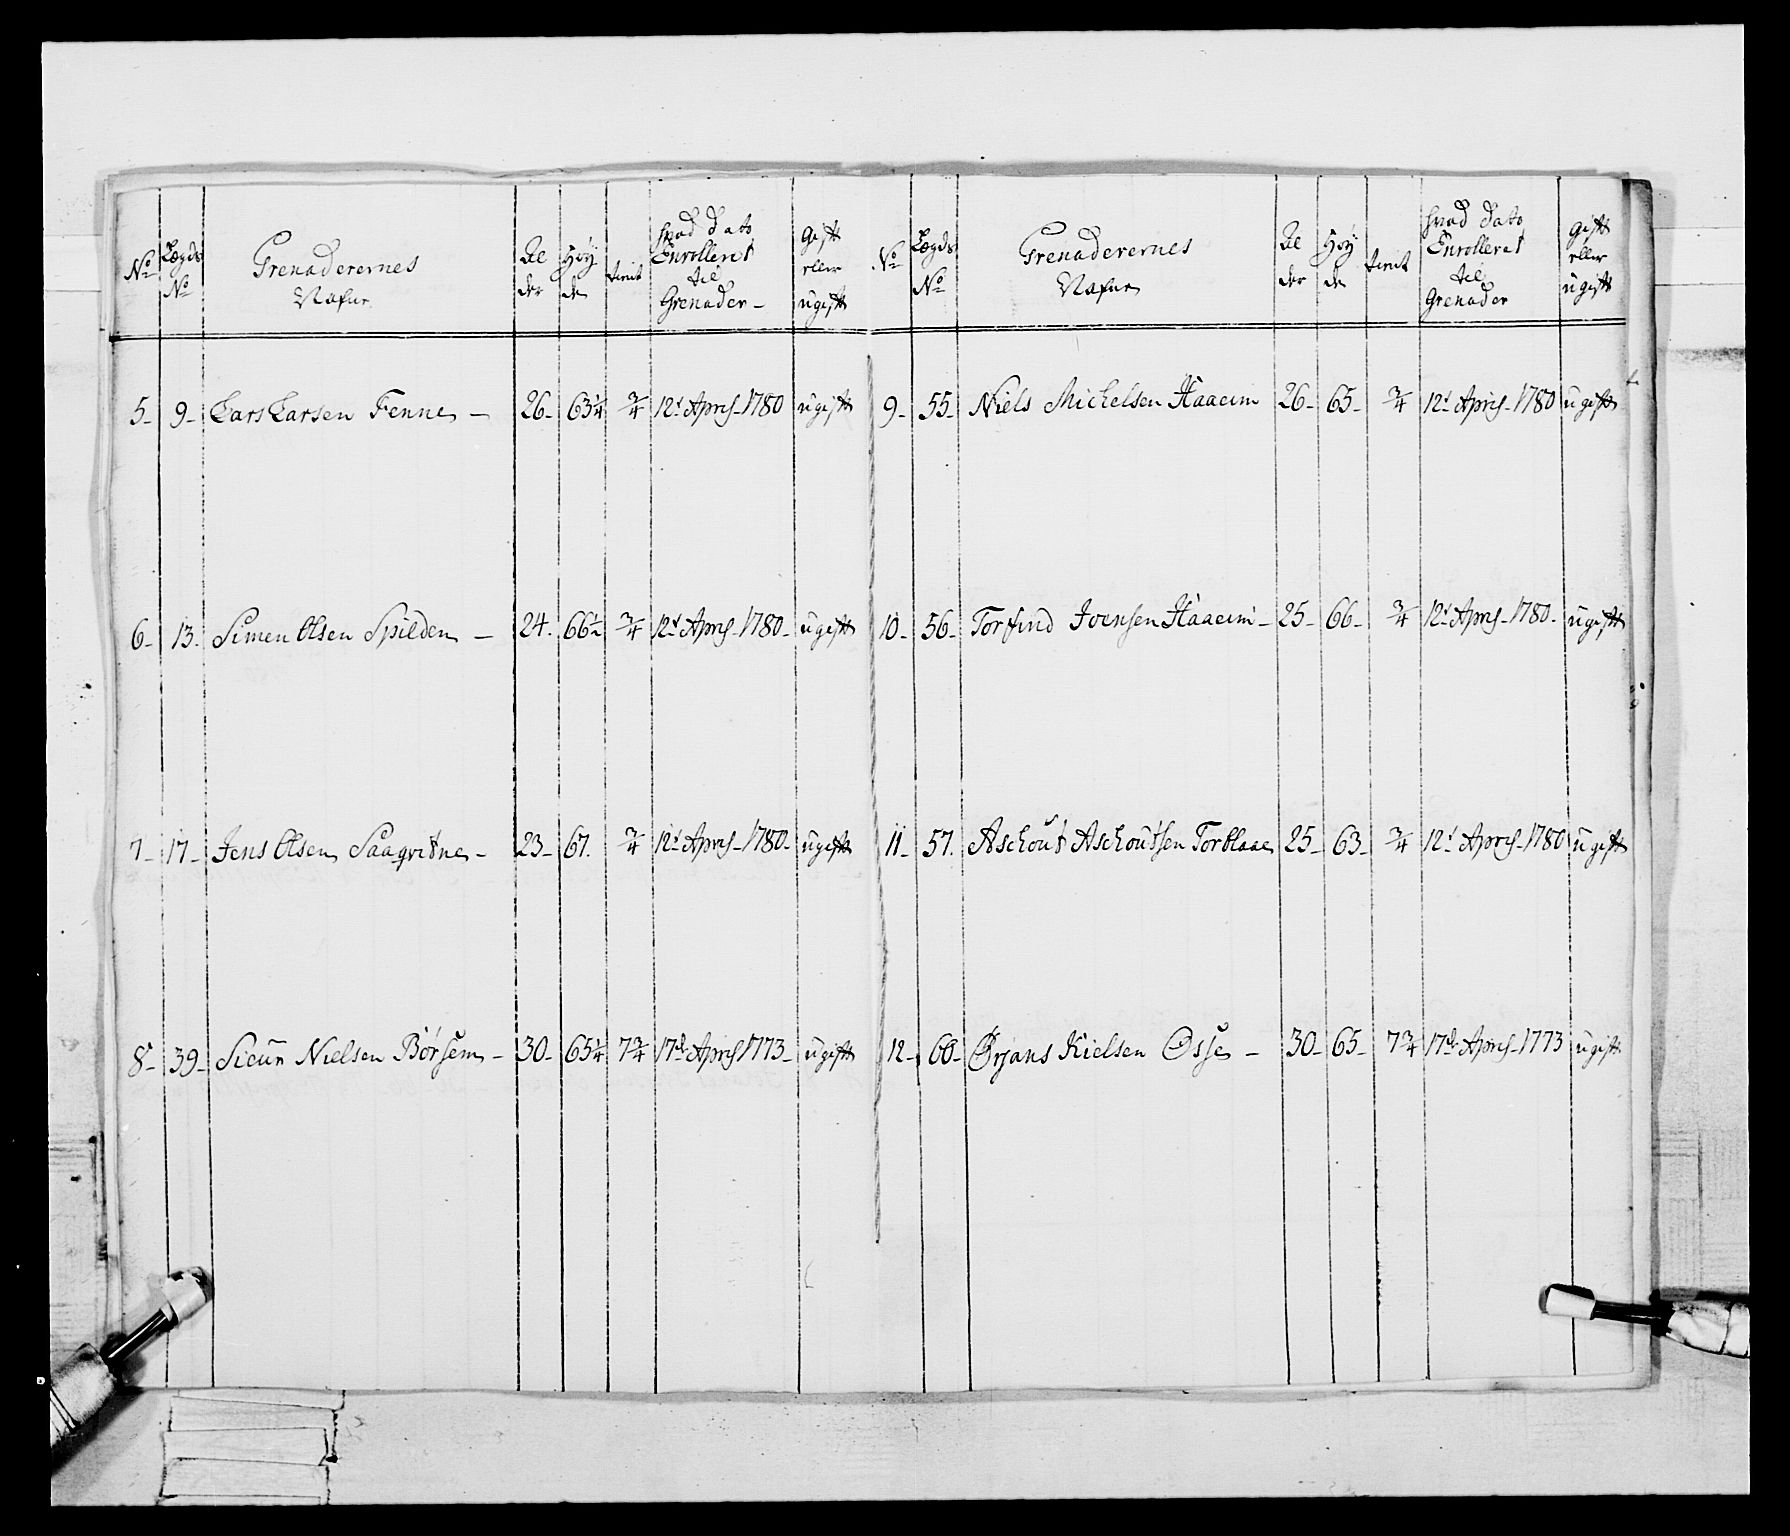 No Lægds No Grenaderernes Nafne Al der Høy de tient hvad dato Enrolleret til Grenader Gift eller ugift
5 9 Lars Larsen Fenne 26 63 1/4 3/4 12t April 1780 ugift
6 13 Simen Olsen Spilden 24 66 1/2 3/4 12t April 1780 ugift
7 17 Jens Olsen Saaqvitne 23 67 3/4 12t April 1780 ugift
8 39 Sicur Nielsen Børsem 30 65 1/4 7 3/4 17de April 1773 ugift
No Lægds No Grenaderernes Nafne Al der Høy de tient hvad dato Enrolleret til Grenader gift eller ugift
9 55 Niels Michelsen Haaeim 26 65 3/4 12t April 1780 ugift
10 56 Torfind Joensen Haaeim 25 66 3/4 12t April 1780 ugift
11 57 Aschout Aschoutsen Torblaae 25 63 3/4 12t April 1780 ugift
12 60 Ørjans Kielsen Øsse 30 65 7 3/4 17de April 1773 ugift